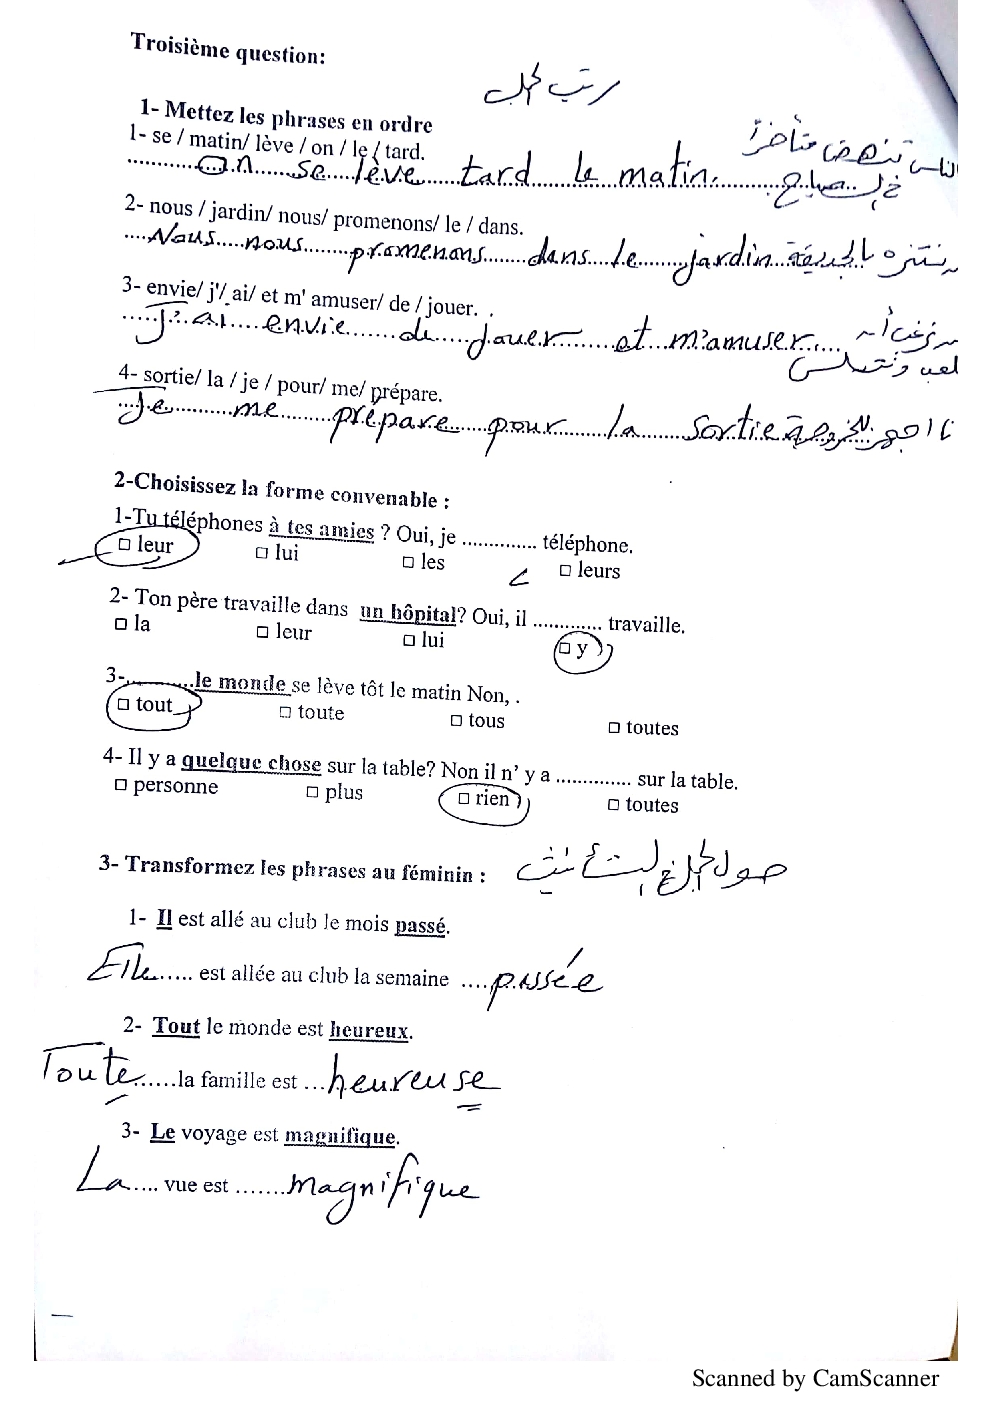 Troisième question:
رتب الجمل
1- Mettez les phrases en ordre
1- se / matin/ lève / on / le / tard.
الناس تنهض متأخرًا
On se lève tard le matin.
في الصباح
2- nous / jardin/ nous/ promenons/ le / dans.
Nous nous promenons dans le jardin نتنزه بالحديقة
3- envie/ j'/ ai/ et m' amuser/ de / jouer. .
J'ai envie de jouer et m'amuser.
4- sortie/ la / je / pour/ me/ prépare.
Je me prépare pour la sortie
2-Choisissez la forme convenable :
1-Tu téléphones à tes amies ? Oui, je ............. téléphone.
□ leur □ lui □ les □ leurs
2- Ton père travaille dans un hôpital? Oui, il ............ travaille.
□ la □ leur □ lui □ y
3-............le monde se lève tôt le matin Non, .
□ tout □ toute □ tous □ toutes
4- Il y a quelque chose sur la table? Non il n' y a ............. sur la table.
□ personne □ plus □ rien □ toutes
3- Transformez les phrases au féminin :
1- Il est allé au club le mois passé.
Elle..... est allée au club la semaine ....passée
2- Tout le monde est heureux.
Toute......la famille est ...heureuse
3- Le voyage est magnifique.
La.... vue est .......magnifique
Scanned by CamScanner